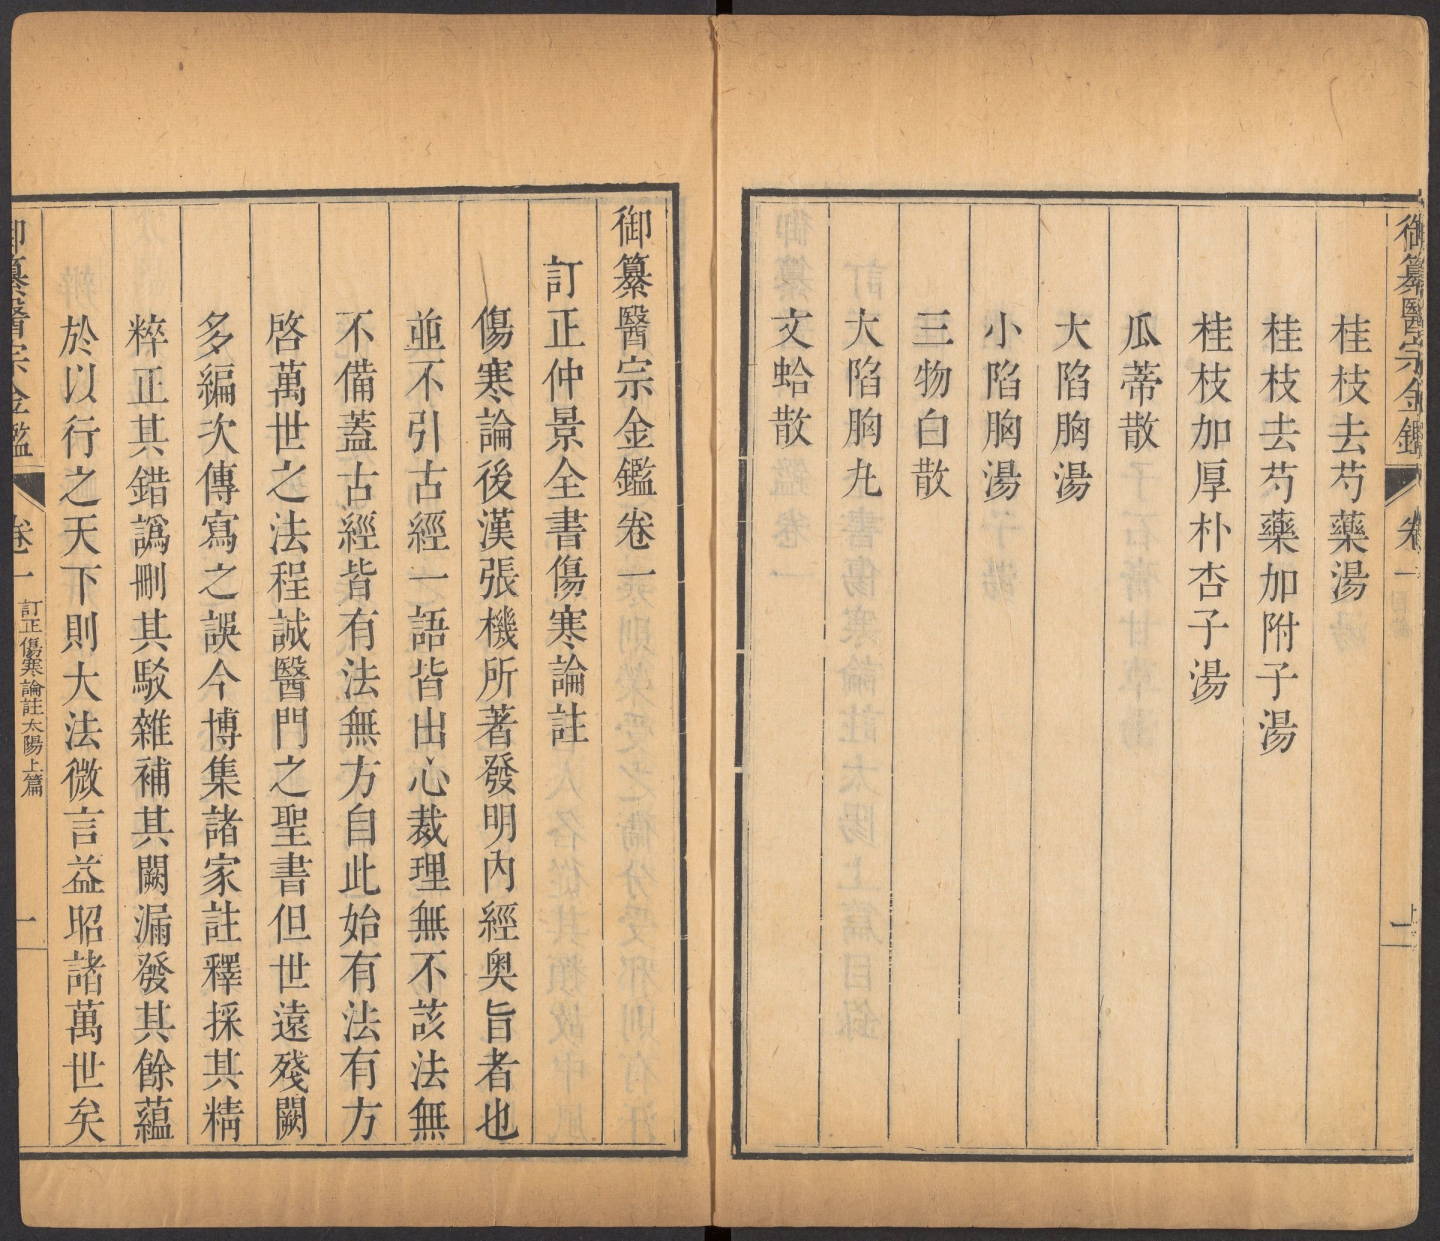 御纂醫宗金鑑
卷一
二
桂枝去芍藥湯
桂枝去芍藥加附子湯
桂枝加厚朴杏子湯
瓜蒂散
大陷胸湯
小陷胸湯
三物白散
大陷胸丸
文蛤散
御纂醫宗金鑑卷一
訂正仲景全書傷寒論註
傷寒論後漢張機所著發明內經奧旨者也
並不引古經一語皆出心裁理無不該法無
不備蓋古經皆有法無方自此始有法有方
啓萬世之法程誠醫門之聖書但世遠殘闕
多編次傳寫之誤今博集諸家註釋採其精
粹正其錯譌刪其駁雜補其闕漏發其餘蘊
於以行之天下則大法微言益昭諸萬世矣
御纂醫宗金鑑
卷一
訂正傷寒論註太陽上篇
一